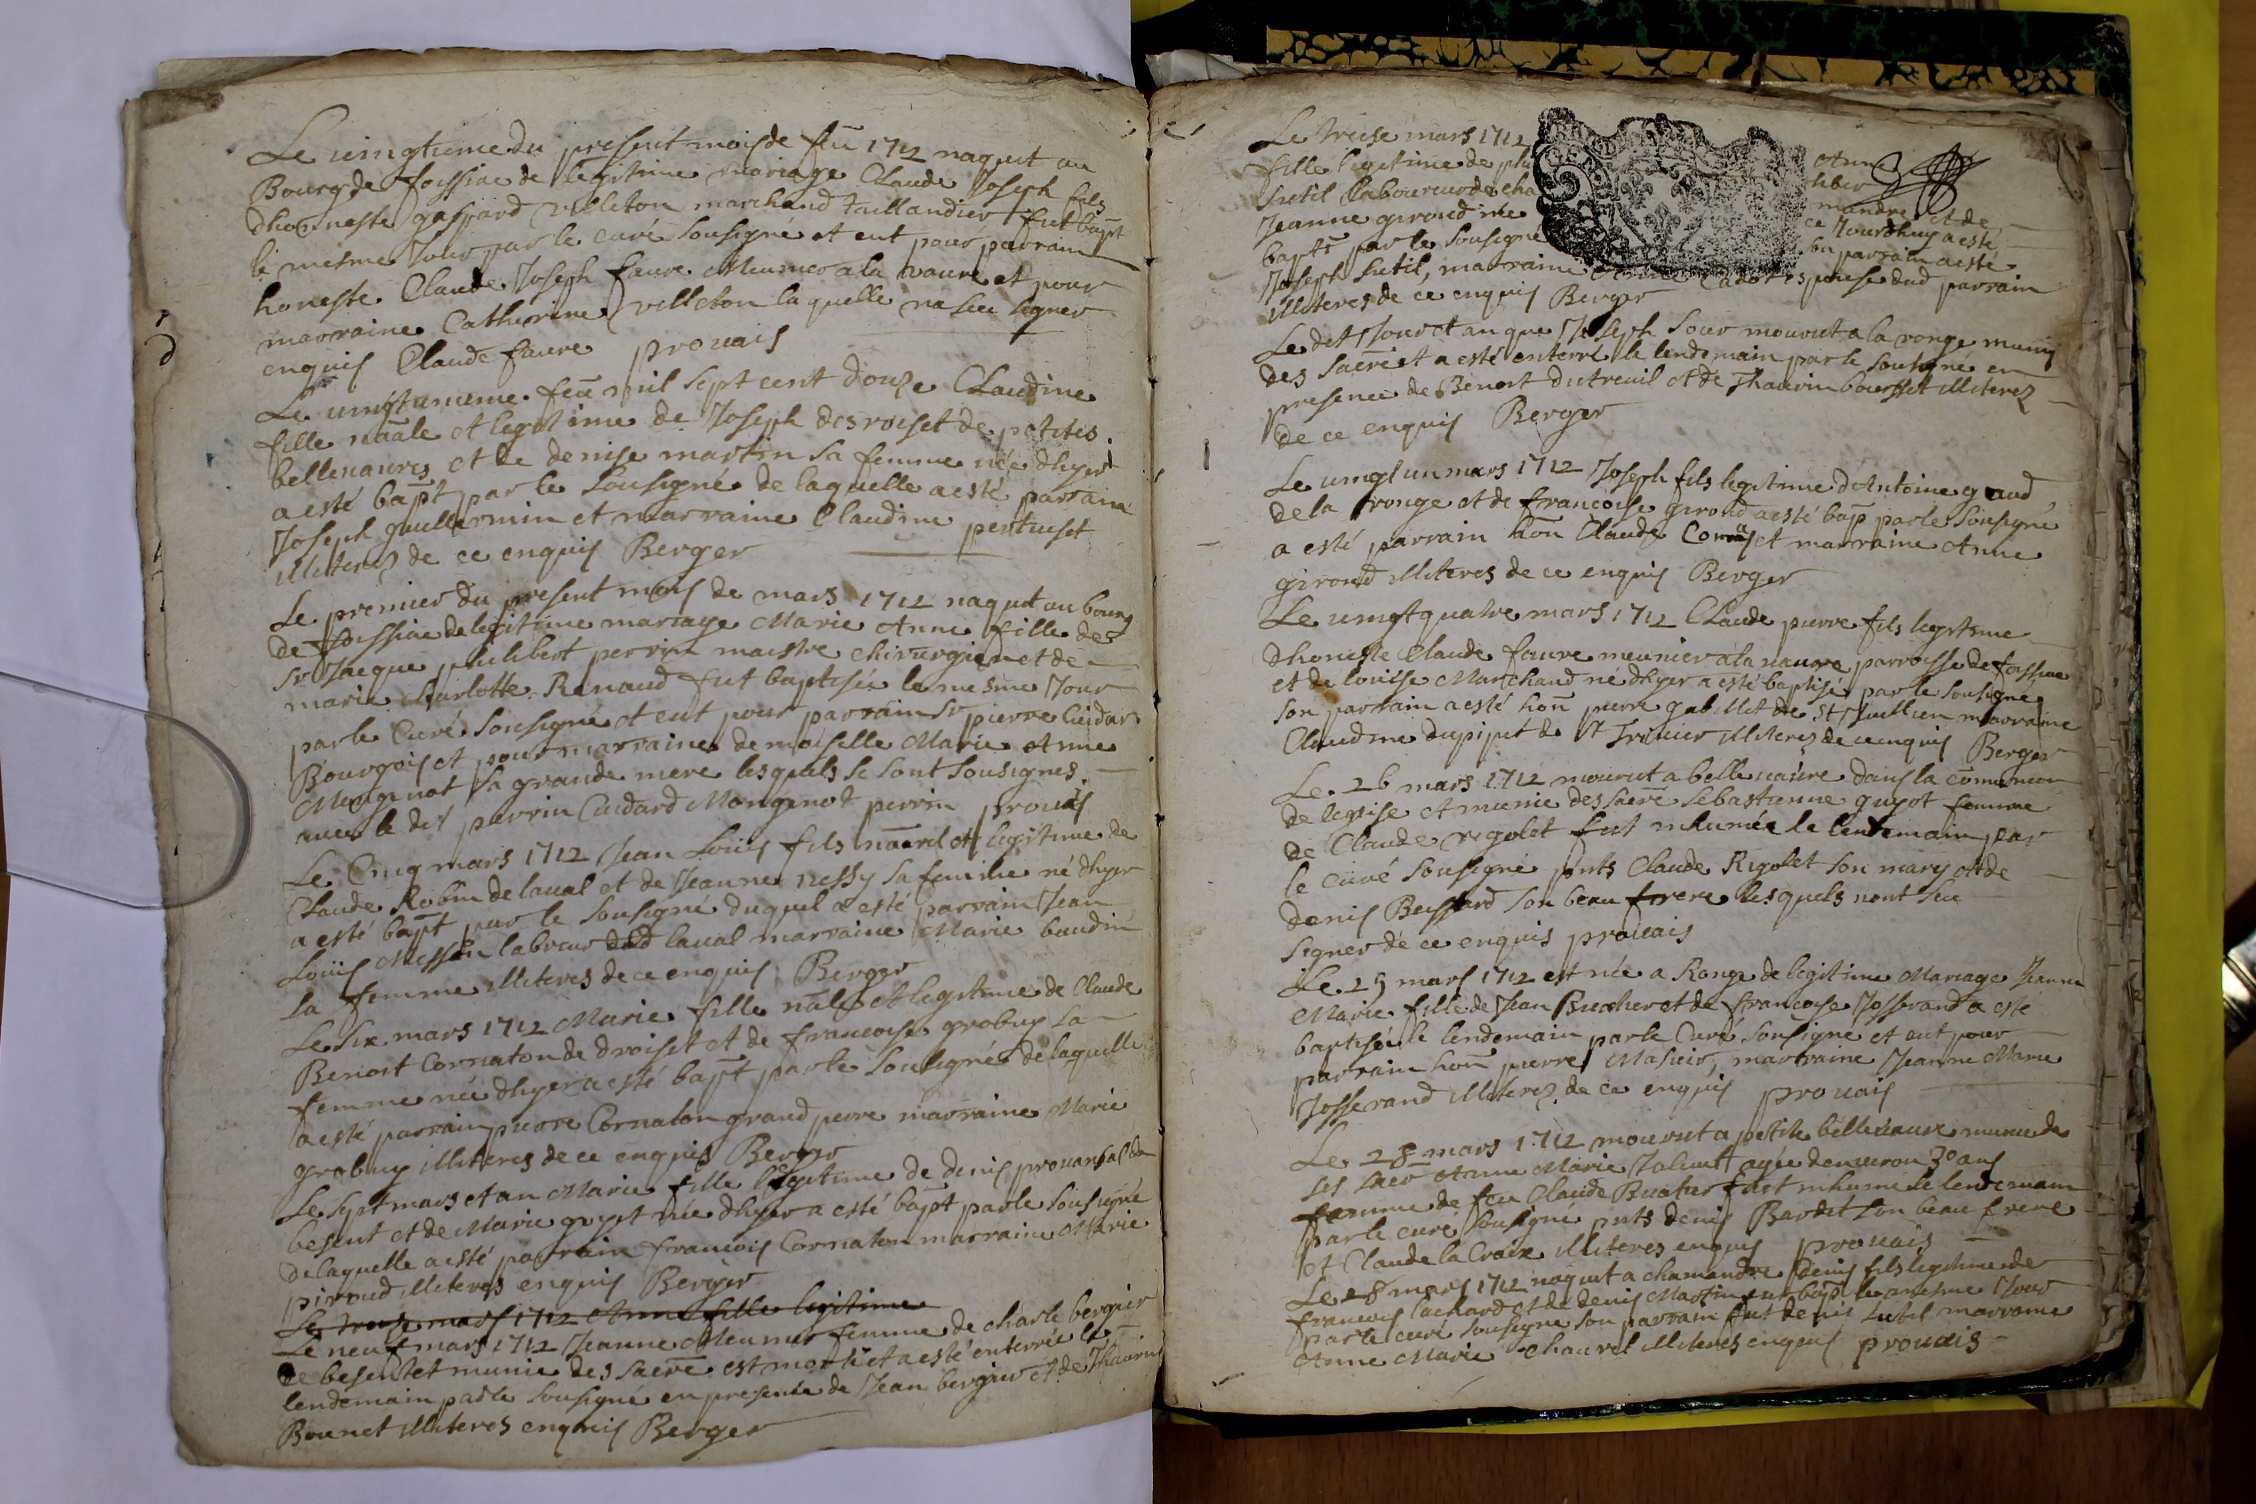 Le vingtieme du present mois de feū 1712 naquit au
Bourg de foissiac de legitime mariage Claude Joseph fils
dhonneste gaspard Villeton marchand taillandier fut bapt
le mesme Jour par le curé Sousigné et eut pour parrain
honeste Claude Joseph faure Meunier a la vaure et pour
marraine Catherine Villeton laquelle na sceu signer
enquis Claude faure prouais
Le vingt feū mil sept cent douze Claudine
fille nāale et legitime de Joseph desroiset de petites
bellenaures et de denise martin sa femme née dhyer
a esté bapt par le Sousigné de laquelle a esté parrain
Joseph guillermin et marraine Claudine pertuiset
illiterez de ce enquis Berger
Le premier du present mois de mars 1712 naquit au bourg
de foissiac de legitime mariage Marie Anne fille de
Sr Jacque philibert perrin maistre chirurgien et de
marie Charlotte Renaud fut baptisée le mesme Jour
par le Curé Sousigné et eut pour parrain Sr pierre Cuidard
Bourgois et pour marraine demoiselle Marie Anne
Monginot sa grande mere lesquels se sont sousignes
avec le dit perrin Cuidard Monginot perrin prouais
Le Cinq mars 1712 Jean Loüis fils nāarel et legitime de
Claude Robin de laval et de Jeanne nessy sa femme né dhyer
a esté bapt par le Sousigné duquel a esté parrain Jean
Loüis laboeur dud laval marraine Marie baudin
la femme illiteres de ce enquis Berger
Le Six mars 1712 Marie fille nāle et legitime de Claude
Benoit Cornaton de droiset et de francoise grobuy sa
femme née dhyer a esté bapt par le Sousigné de laquelle
a esté parrain pierre Cornaton grand pere marraine Marie
grobuy illiteres de ce enquis Berger
Le Sept mars et an Marie fille legitime de denis prouansal de
besent et de Marie guyot née dhyer a esté bapt par le sousigné
de laquelle a esté parrain francois Cornaton marraine Marie
piroud illiteres enquis Berger
Le treize mars 1712 Anne fille legitime
Le neuf mars 1712 Jeanne Meunier femme de charle bergier
de besentet munie des sacrē est morte et a esté enterrée le
lendemain par le sousigné en presence de Jean bergier et de Thaurin
Bounet illiteres enquis Berger
Le treise mars 1712 Ann
fille legitime de phi liber
Sutil laboureur de cha mandre et de
Jeanne giroud née ce Jourdhuy a esté
bapts par le Sousigné parrain a esté
Joseph Sutil, marraine espouse dud parrain
illiteres de ce enquis Berger
Le dit Jour et an que Joseph Sour mourut a la ronge muny
des sacrē et a esté enterré le lendemain par le Sousigné en
presence de Benoit dutreuil et de Thaurin bousset illiterez
de ce enquis Berger
Le vingt un mars 1712 Joseph fils legitime d'Antoine
de la ronge et de francoise giroud a esté bap par le Sousigné
a esté parrain hon Claude et marraine Anne
giroud illiteres de ce enquis Berger
Le vingt quatre mars 1712 Claude pierre fils legitime
dhoneste Claude faure meunier a la vaure parroisse de foissiac
et de louise Marchand né dhyer a esté baptisé par le sousigné
son parrain a esté hon pierre gabillet de St Juillien marraine
Claudine dupiput de St Triuier illiterez de ce enquis Berger
Le 26 mars 1712 mourut a bellevaure dans la comunion
de leglise et munie des sacrē Sebastienne guyot femme
de Claude rigolet fut inhumée le lendemain par
le curé Sousigné pnts Claude Rigolet son mary et de
denis Bessard son beau frere lesquels nont sceu
signer de ce enquis prouais
Le 25 mars 1712 est née a Ronge de legitime Mariage Jeanne
Marie fille de Jean Buatier et de francoise Josserand a esté
baptisée le lendemain par le Curé Sousigné et eut pour
parrain hon pierre Masuir, marraine Jeanne Marie
Josserand illiterez de ce enquis prouais
Le 28 mars 1712 mourut a petite bellevaure munie de
ses sacr Anne Marie agée denviron 30 ans
femme de feu Claude Buatier fut inhumée le lendemain
par le curé sousigné pnts denis Bardet son beau frere
et Claude la Croix illiteres enquis prouais
Le 28 mars 1712 naquit a chamandre denis fils legitime de
francois lachard et de denis Martin fut bap le mesme Jour
par le curé sousigné son parrain fut denis Sutil marraine
Anne Marie Chauvel illiteres enquis prouais